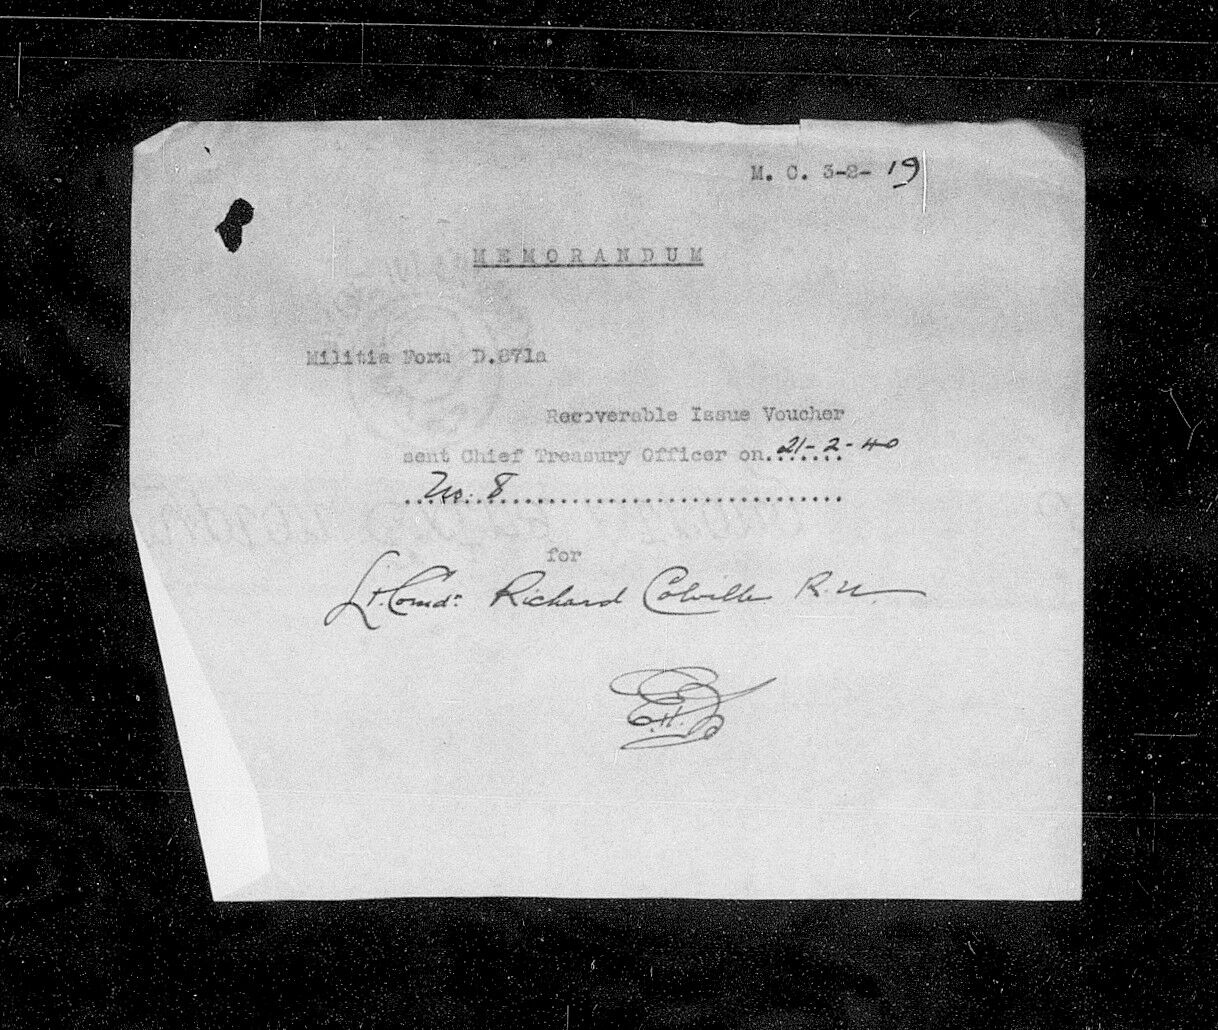 M. C. 3-2- 19
MEMORANDUM
Militia Form D.871a
Recoverable Issue Voucher
sent Chief Treasury Officer on. 21-2-40
No. 8
for
Lt. Comdr: Richard Colville R.N.